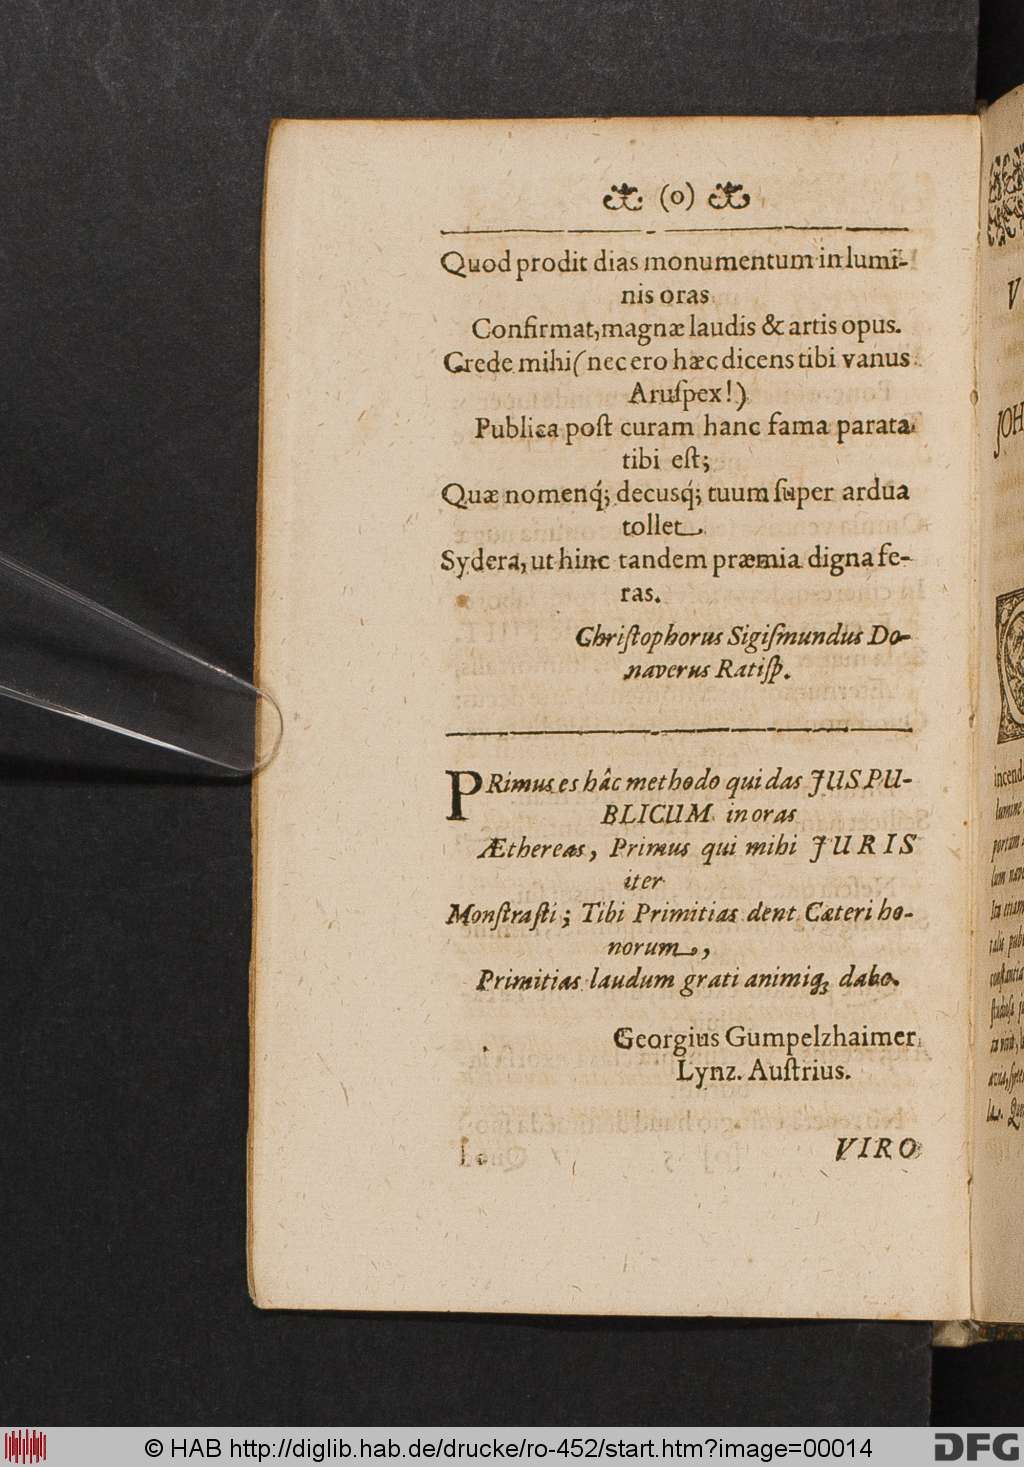 (o)
Quod prodit dias monumentum in lumi-
nis oras
Confirmat, magnæ laudis & artis opus.
Crede mihi (nec ero hæc dicens tibi vanus
Aruſpex!)
Publica poſt curam hanc fama parata
tibi eſt;
Quæ nomenq́; decusq́; tuum ſuper ardua
tollet
Sydera, ut hinc tandem præmia digna fe-
ras.
Chriſtophorus Sigiſmundus Do-
naverus Ratiſp.
PRimus es hâc methodo qui das JUS PU-
BLICUM in oras
Æthereas, Primus qui mihi JURIS
iter
Monſtraſti; Tibi Primitias dent Cæteri ho-
norum,
Primitias laudum grati animiq; dabo.
Georgius Gumpelzhaimer
Lynz. Auſtrius.
VIRO
V
JOH
incend
lumine
portum
lum nave
© HAB http://diglib.hab.de/drucke/ro-452/start.htm?image=00014
DFG